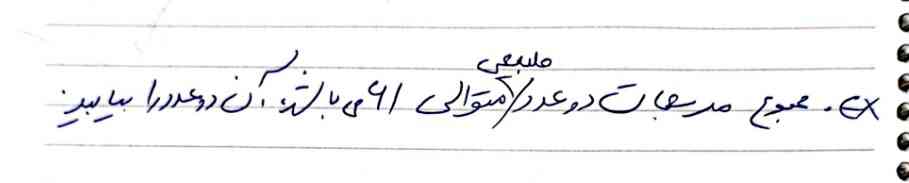 Ex. مجموع مربعات دو عدد طبیعی متوالی ۶۱ می باشد، آن دو عدد را بیابید